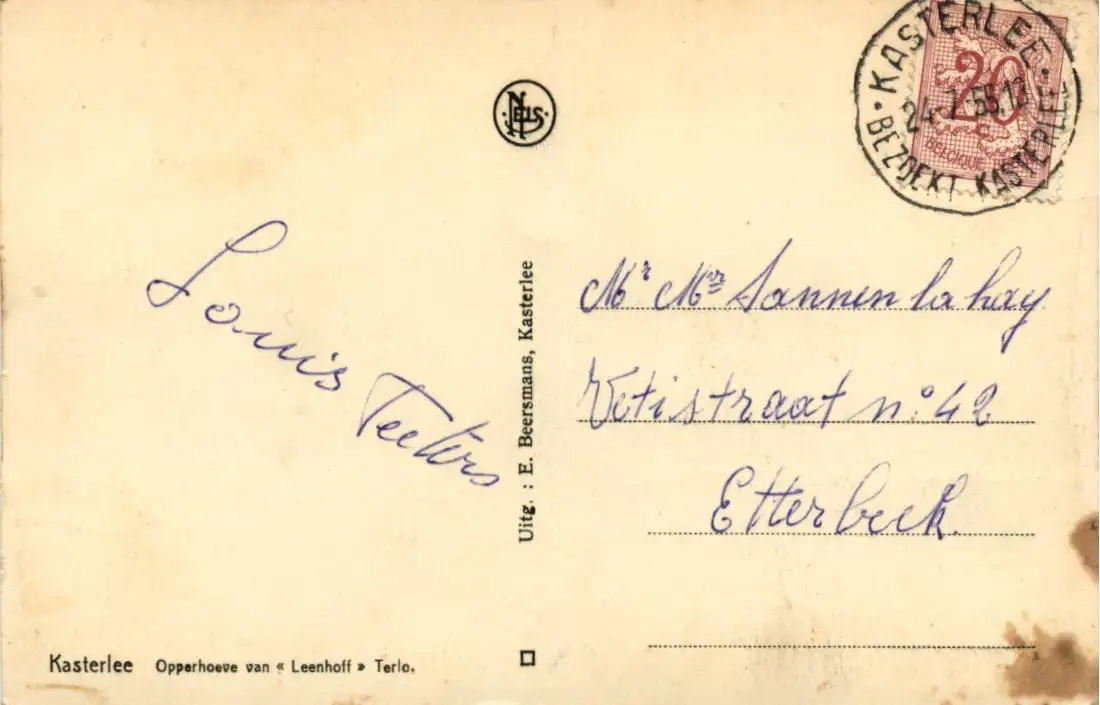 Louis
Teeters
Kasterlee Opperhoeve van « Leenhoff » Terlo.
NELS
Uitg. : E. Beersmans, Kasterlee
KASTERLEE
24-7-55.13
BEZOEKT KASTERLEE
20
BELGIQUE
Mr Mme Sannen la hay
straat n° 42
Etterbeek.